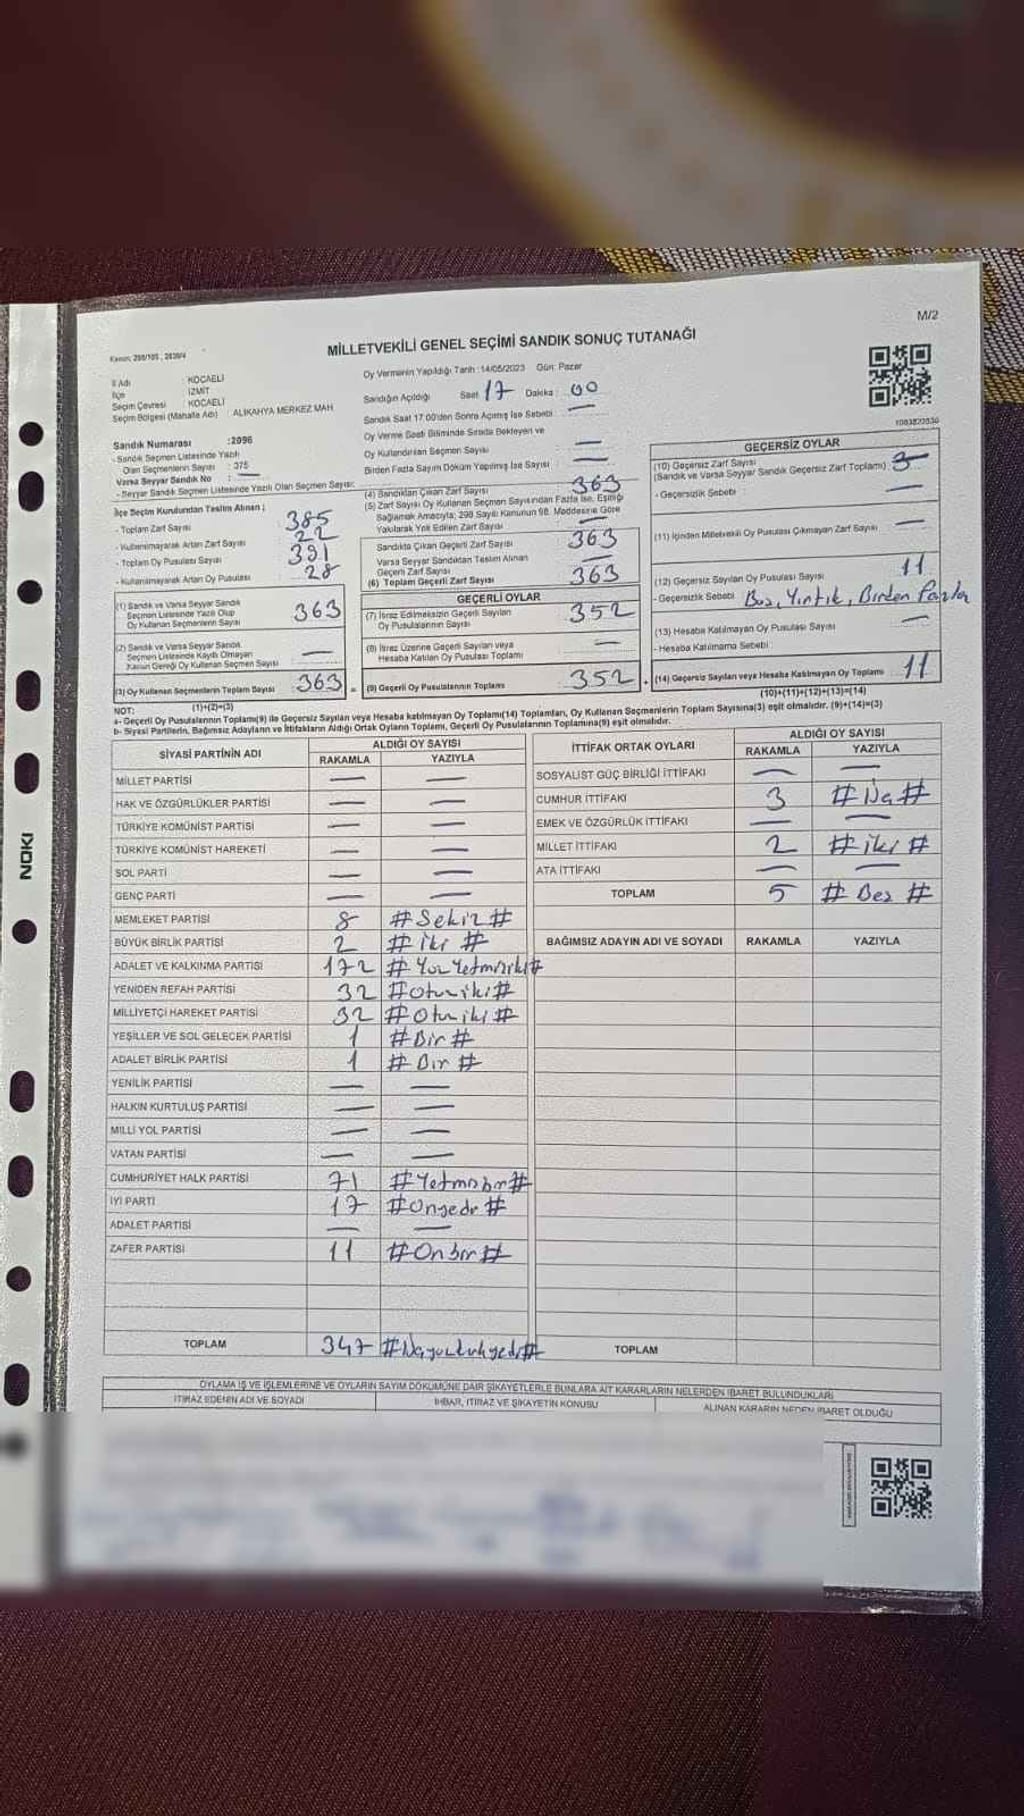 M/2
Kanun: 298/105, 2839/4
MİLLETVEKİLİ GENEL SEÇİMİ SANDIK SONUÇ TUTANAĞI
İl Adı : KOCAELİ
İlçe : İZMİT
Seçim Çevresi : KOCAELİ
Seçim Bölgesi (Mahalle Adı) ALİKAHYA MERKEZ MAH.
Sandık Numarası :2096
- Sandık Seçmen Listesinde Yazılı
Olan Seçmenlerin Sayısı : 375
Varsa Seyyar Sandık No : —
- Seyyar Sandık Seçmen Listesinde Yazılı Olan Seçmen Sayısı:
İlçe Seçim Kurulundan Teslim Alınan ;
- Toplam Zarf Sayısı 385
- Kullanılmayarak Artan Zarf Sayısı 22
- Toplam Oy Pusulası Sayısı 391
- Kullanılmayarak Artan Oy Pusulası 28
(1) Sandık ve Varsa Seyyar Sandık
Seçmen Listesinde Yazılı Olup
Oy Kullanan Seçmenlerin Sayısı 363
(2) Sandık ve Varsa Seyyar Sandık
Seçmen Listesinde Kaydı Olmayan
Kanun Gereği Oy Kullanan Seçmen Sayısı —
(3) Oy Kullanan Seçmenlerin Toplam Sayısı 363 =
(1)+(2)=(3)
Oy Vermenin Yapıldığı Tarih : 14/05/2023 Gün: Pazar
Sandığın Açıldığı Saat 17 Dakika : 00
Sandık Saat 17:00'den Sonra Açılmış İse Sebebi : —
Oy Verme Saati Bitiminde Sırada Bekleyen ve
Oy Kullandırılan Seçmen Sayısı —
Birden Fazla Sayım Döküm Yapılmış İse Sayısı : —
(4) Sandıktan Çıkan Zarf Sayısı 363
(5) Zarf Sayısı Oy Kullanan Seçmen Sayısından Fazla İse, Eşitliği
Sağlamak Amacıyla; 298 Sayılı Kanunun 98. Maddesine Göre
Yakılarak Yok Edilen Zarf Sayısı —
Sandıkta Çıkan Geçerli Zarf Sayısı 363
Varsa Seyyar Sandıktan Teslim Alınan
Geçerli Zarf Sayısı —
(6) Toplam Geçerli Zarf Sayısı 363
GEÇERLİ OYLAR
(7) İtiraz Edilmeksizin Geçerli Sayılan
Oy Pusulalarının Sayısı 352
(8) İtiraz Üzerine Geçerli Sayılan veya
Hesaba Katılan Oy Pusulası Toplamı —
(9) Geçerli Oy Pusulalarının Toplamı 352 +
1083820530
GEÇERSİZ OYLAR
(10) Geçersiz Zarf Sayısı
(Sandık ve Varsa Seyyar Sandık Geçersiz Zarf Toplamı)
- Geçersizlik Sebebi : —
(11) İçinden Milletvekili Oy Pusulası Çıkmayan Zarf Sayısı —
(12) Geçersiz Sayılan Oy Pusulası Sayısı 11
- Geçersizlik Sebebi Boş, Yırtık, Birden Fazla
(13) Hesaba Katılmayan Oy Pusulası Sayısı —
- Hesaba Katılmama Sebebi :
(14) Geçersiz Sayılan veya Hesaba Katılmayan Oy Toplamı 11
(10)+(11)+(12)+(13)=(14)
NOT:
a- Geçerli Oy Pusulalarının Toplamı(9) ile Geçersiz Sayılan veya Hesaba katılmayan Oy Toplamı(14) Toplamları, Oy Kullanan Seçmenlerin Toplam Sayısına(3) eşit olmalıdır. (9)+(14)=(3)
b- Siyasi Partilerin, Bağımsız Adayların ve İttifakların Aldığı Ortak Oyların Toplamı, Geçerli Oy Pusulalarının Toplamına(9) eşit olmalıdır.
SİYASİ PARTİNİN ADI ALDIĞI OY SAYISI
RAKAMLA YAZIYLA
MİLLET PARTİSİ — —
HAK VE ÖZGÜRLÜKLER PARTİSİ — —
TÜRKİYE KOMÜNİST PARTİSİ — —
TÜRKİYE KOMÜNİST HAREKETİ — —
SOL PARTİ — —
GENÇ PARTİ — —
MEMLEKET PARTİSİ 8 #Sekiz#
BÜYÜK BİRLİK PARTİSİ 2 #iki#
ADALET VE KALKINMA PARTİSİ 172 #Yüzyetmişiki#
YENİDEN REFAH PARTİSİ 32 #Otuziki#
MİLLİYETÇİ HAREKET PARTİSİ 32 #Otuziki#
YEŞİLLER VE SOL GELECEK PARTİSİ 1 #Bir#
ADALET BİRLİK PARTİSİ 1 #Bir#
YENİLİK PARTİSİ — —
HALKIN KURTULUŞ PARTİSİ — —
MİLLİ YOL PARTİSİ — —
VATAN PARTİSİ — —
CUMHURİYET HALK PARTİSİ 71 #Yetmişbir#
İYİ PARTİ 17 #Onyedi#
ADALET PARTİSİ — —
ZAFER PARTİSİ 11 #Onbir#
TOPLAM 347 #Üçyüzkırkyedi#
İTTİFAK ORTAK OYLARI ALDIĞI OY SAYISI
RAKAMLA YAZIYLA
SOSYALİST GÜÇ BİRLİĞİ İTTİFAKI — —
CUMHUR İTTİFAKI 3 #Üç#
EMEK VE ÖZGÜRLÜK İTTİFAKI — —
MİLLET İTTİFAKI 2 #iki#
ATA İTTİFAKI — —
TOPLAM 5 #Beş#
BAĞIMSIZ ADAYIN ADI VE SOYADI RAKAMLA YAZIYLA
TOPLAM
OYLAMA İŞ VE İŞLEMLERİNE VE OYLARIN SAYIM DÖKÜMÜNE DAİR ŞİKAYETLERLE BUNLARA AİT KARARLARIN NELERDEN İBARET BULUNDUKLARI
İTİRAZ EDENİN ADI VE SOYADI İHBAR, İTİRAZ VE ŞİKAYETİN KONUSU ALINAN KARARIN NEDEN İBARET OLDUĞU
NOKI